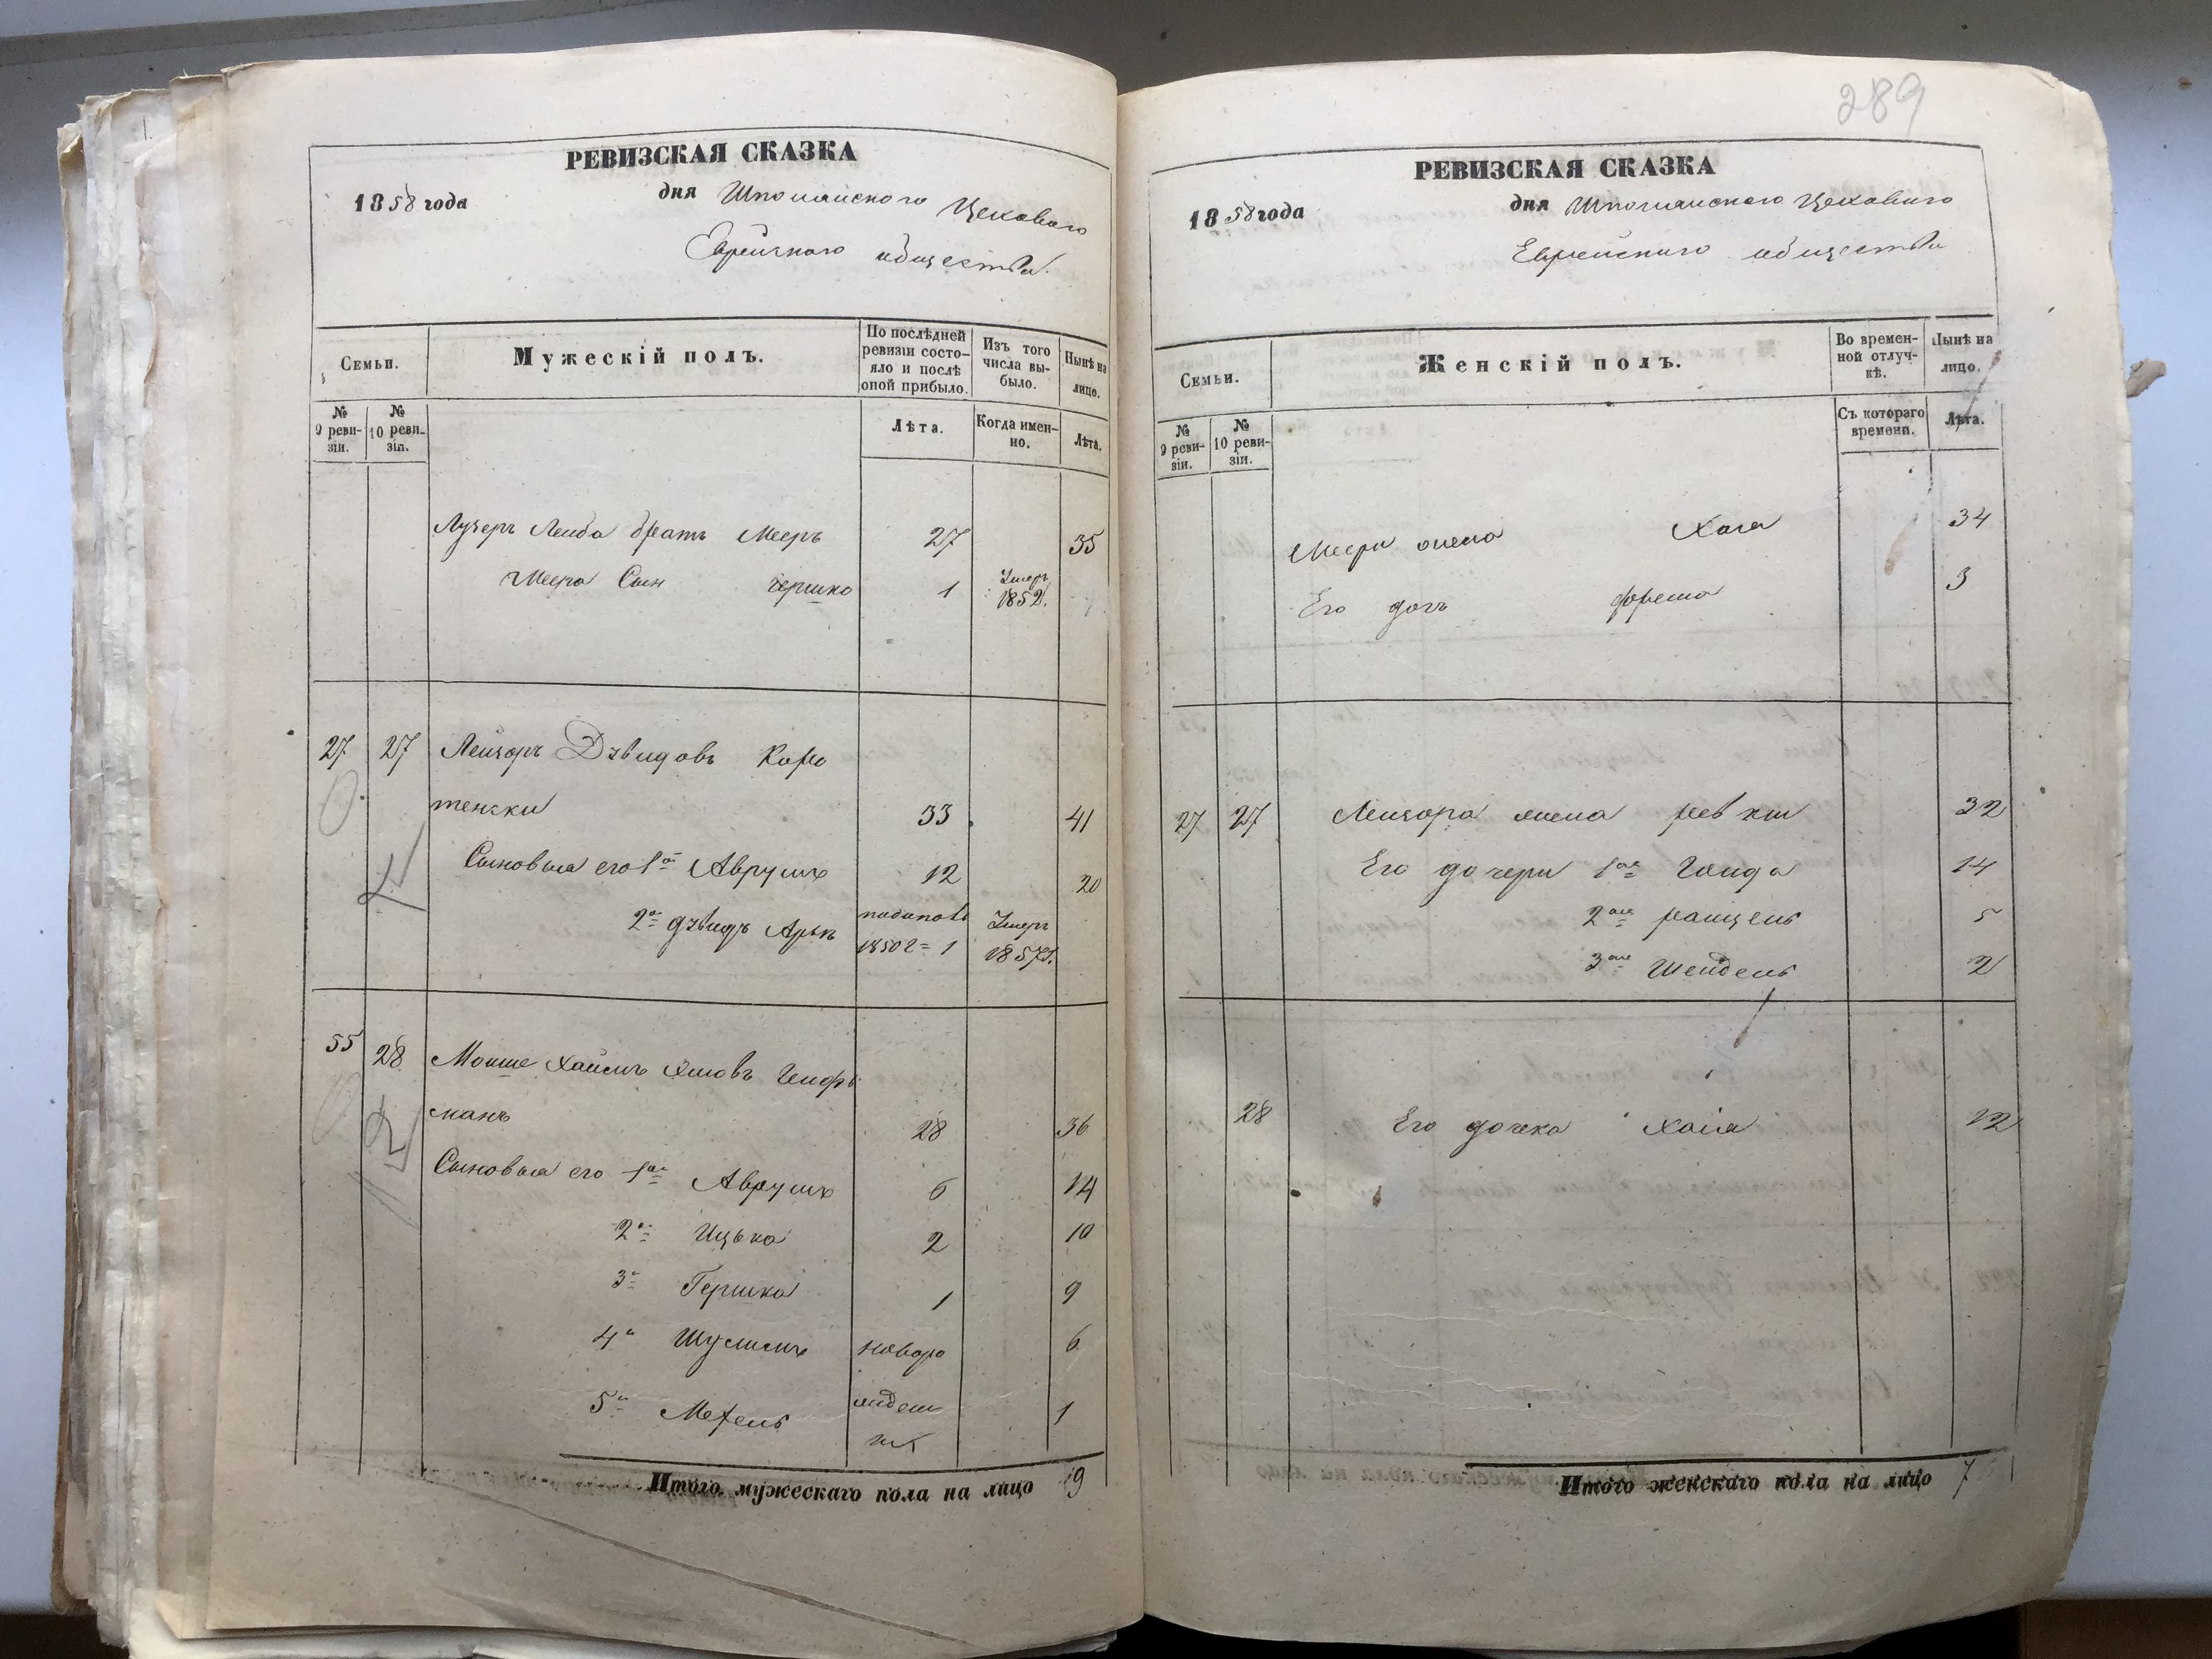 РЕВИЗСКАЯ СКАЗКА
1858 года дня Шполянского Цехового
Еврейского общества.
Семьи.
Мужескій полъ.
По послѣдней ревизіи состо-
яло и послѣ оной прибыло.
Изъ того числа вы-
было.
Нынѣ на лицо.
№ 9 реви-
зіи.
№ 10 реви-
зіи.
Лѣта.
Когда имен-
но.
Лѣта.
Лейба братъ Мееръ 27 35
Меера Сын Гершко 1 Умеръ 1852. 
27 27 Лейзоръ Дувидовъ Коро
тенски 33 41
Сыновья его 1й Аврумъ 12 20
2й Дувидъ Арья 1850 г. 1 Умеръ 1857г.
55 28 Мошше Хаимъ
манъ 28 36
Сыновья его 1й Аврумъ 6 14
2й Ицько 2 10
3й Гершко 1 9
4й Шулимъ новоро 6
5й жден 1
Итого мужескаго пола на лицо 9
289
РЕВИЗСКАЯ СКАЗКА
1858 года дня Шполянского Цехового
Еврейского общества
Семьи.
Женскій полъ.
Во времен-
ной отлуч-
кѣ.
Нынѣ на лицо.
№ 9 реви-
зіи.
№ 10 реви-
зіи.
Съ котораго времени.
Лѣта.
Меера жена Хая 34
Его дочь Фрема 3
27 27 Лейзора жена Ривки 32
Его дочери 1ая 14
2ая 5
3ая Шейдель 2
28 Его дочка Хая 12
Итого женскаго пола на лицо 7